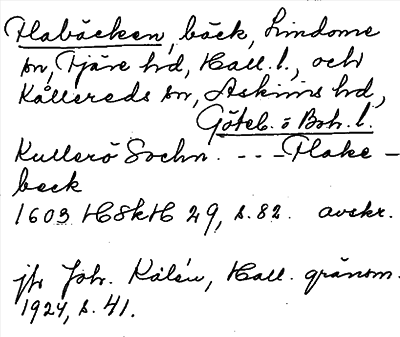 Flabäcken, bäck, Lindome
sn, Fjäre hd, Hall. l., och
Kållereds sn, Askims hd,
Göteb. o Boh. l.
Kullerö Sochn. - - - Flake-
beck
1603 HSkH 29, s. 82. avskr.
jfr Joh. Kalén, Hall. gränsm.
1924, s. 41.